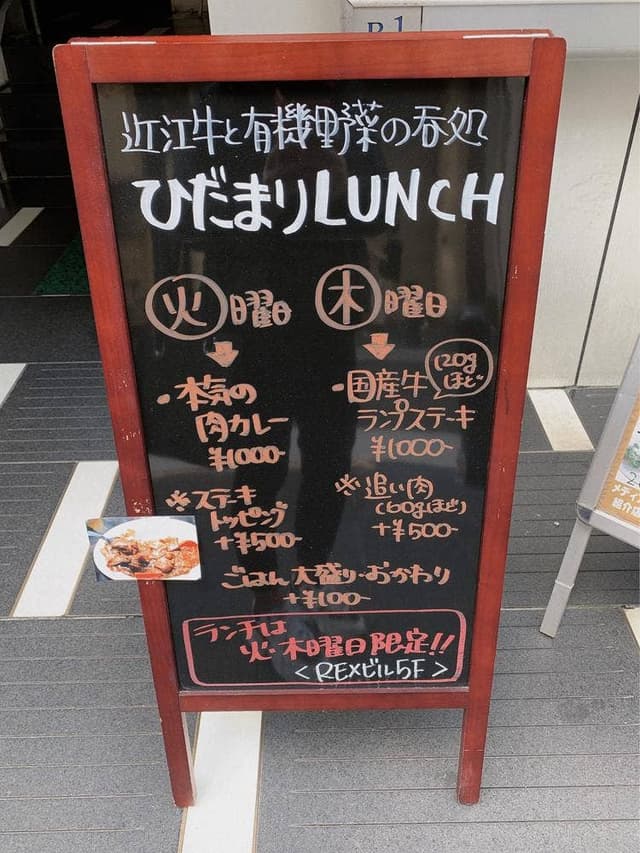 B1
近江牛と有機野菜の呑処
ひだまりLUNCH
火曜日
↓
・本気の
肉カレー
¥1000-
※ステーキ
トッピング
+¥500-
木曜日
↓
・国産牛
120g
ほど
ランプステーキ
¥1000-
※追い肉
(60gほど)
+¥500-
ごはん大盛り・おかわり
+¥100-
ランチは
火・木曜日限定!!
<REXビル5F>
メディ
紹介店